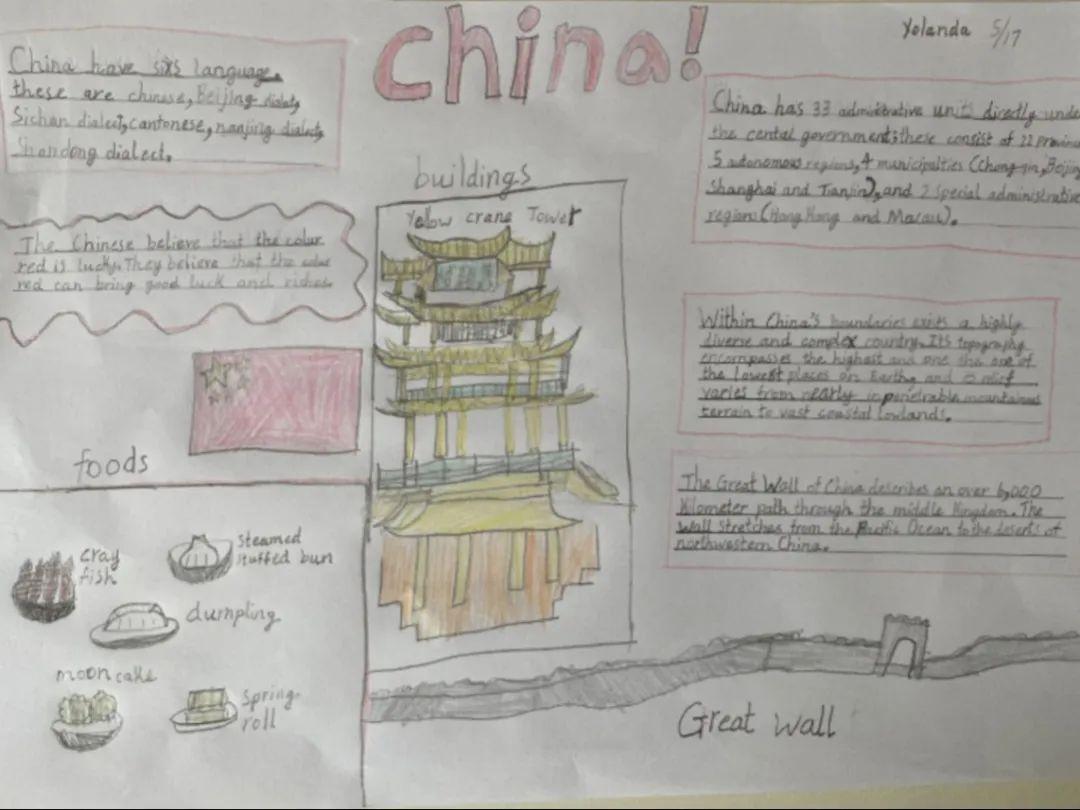 china!
Yolanda 5/17
China have sixs language.
these are chinese, Beijing dialect,
Sichan dialect, cantonese, nanjing dialect,
Shandong dialect.
The Chinese believe that the color
red is lucky. They believe that the color
red can bring good luck and riches.
foods
cray
fish
steamed
stuffed bun
dumpling
moon cake
spring
roll
buildings
Yellow crane Tower
China has 33 administrative units directly under
the cental government; these consist of 22 province
5 autonomous regions, 4 municipalties (Beijing
Shanghai and Tianjin), and 2 special administrative
region (Hong Kong and Macau).
Within China's boundaries exists a highly
diverse and complex country. Its topography
encompasses the highest and one of
the lowest places on Earth, and
varies from nearly inpenetrable mountainous
terrain to vast coastal lowlands.
The Great Wall of China describes an over 6,000
Kilometer path through the middle Kingdom. The
wall stretches from the Pacific Ocean to the deserts of
northwestern China.
Great wall